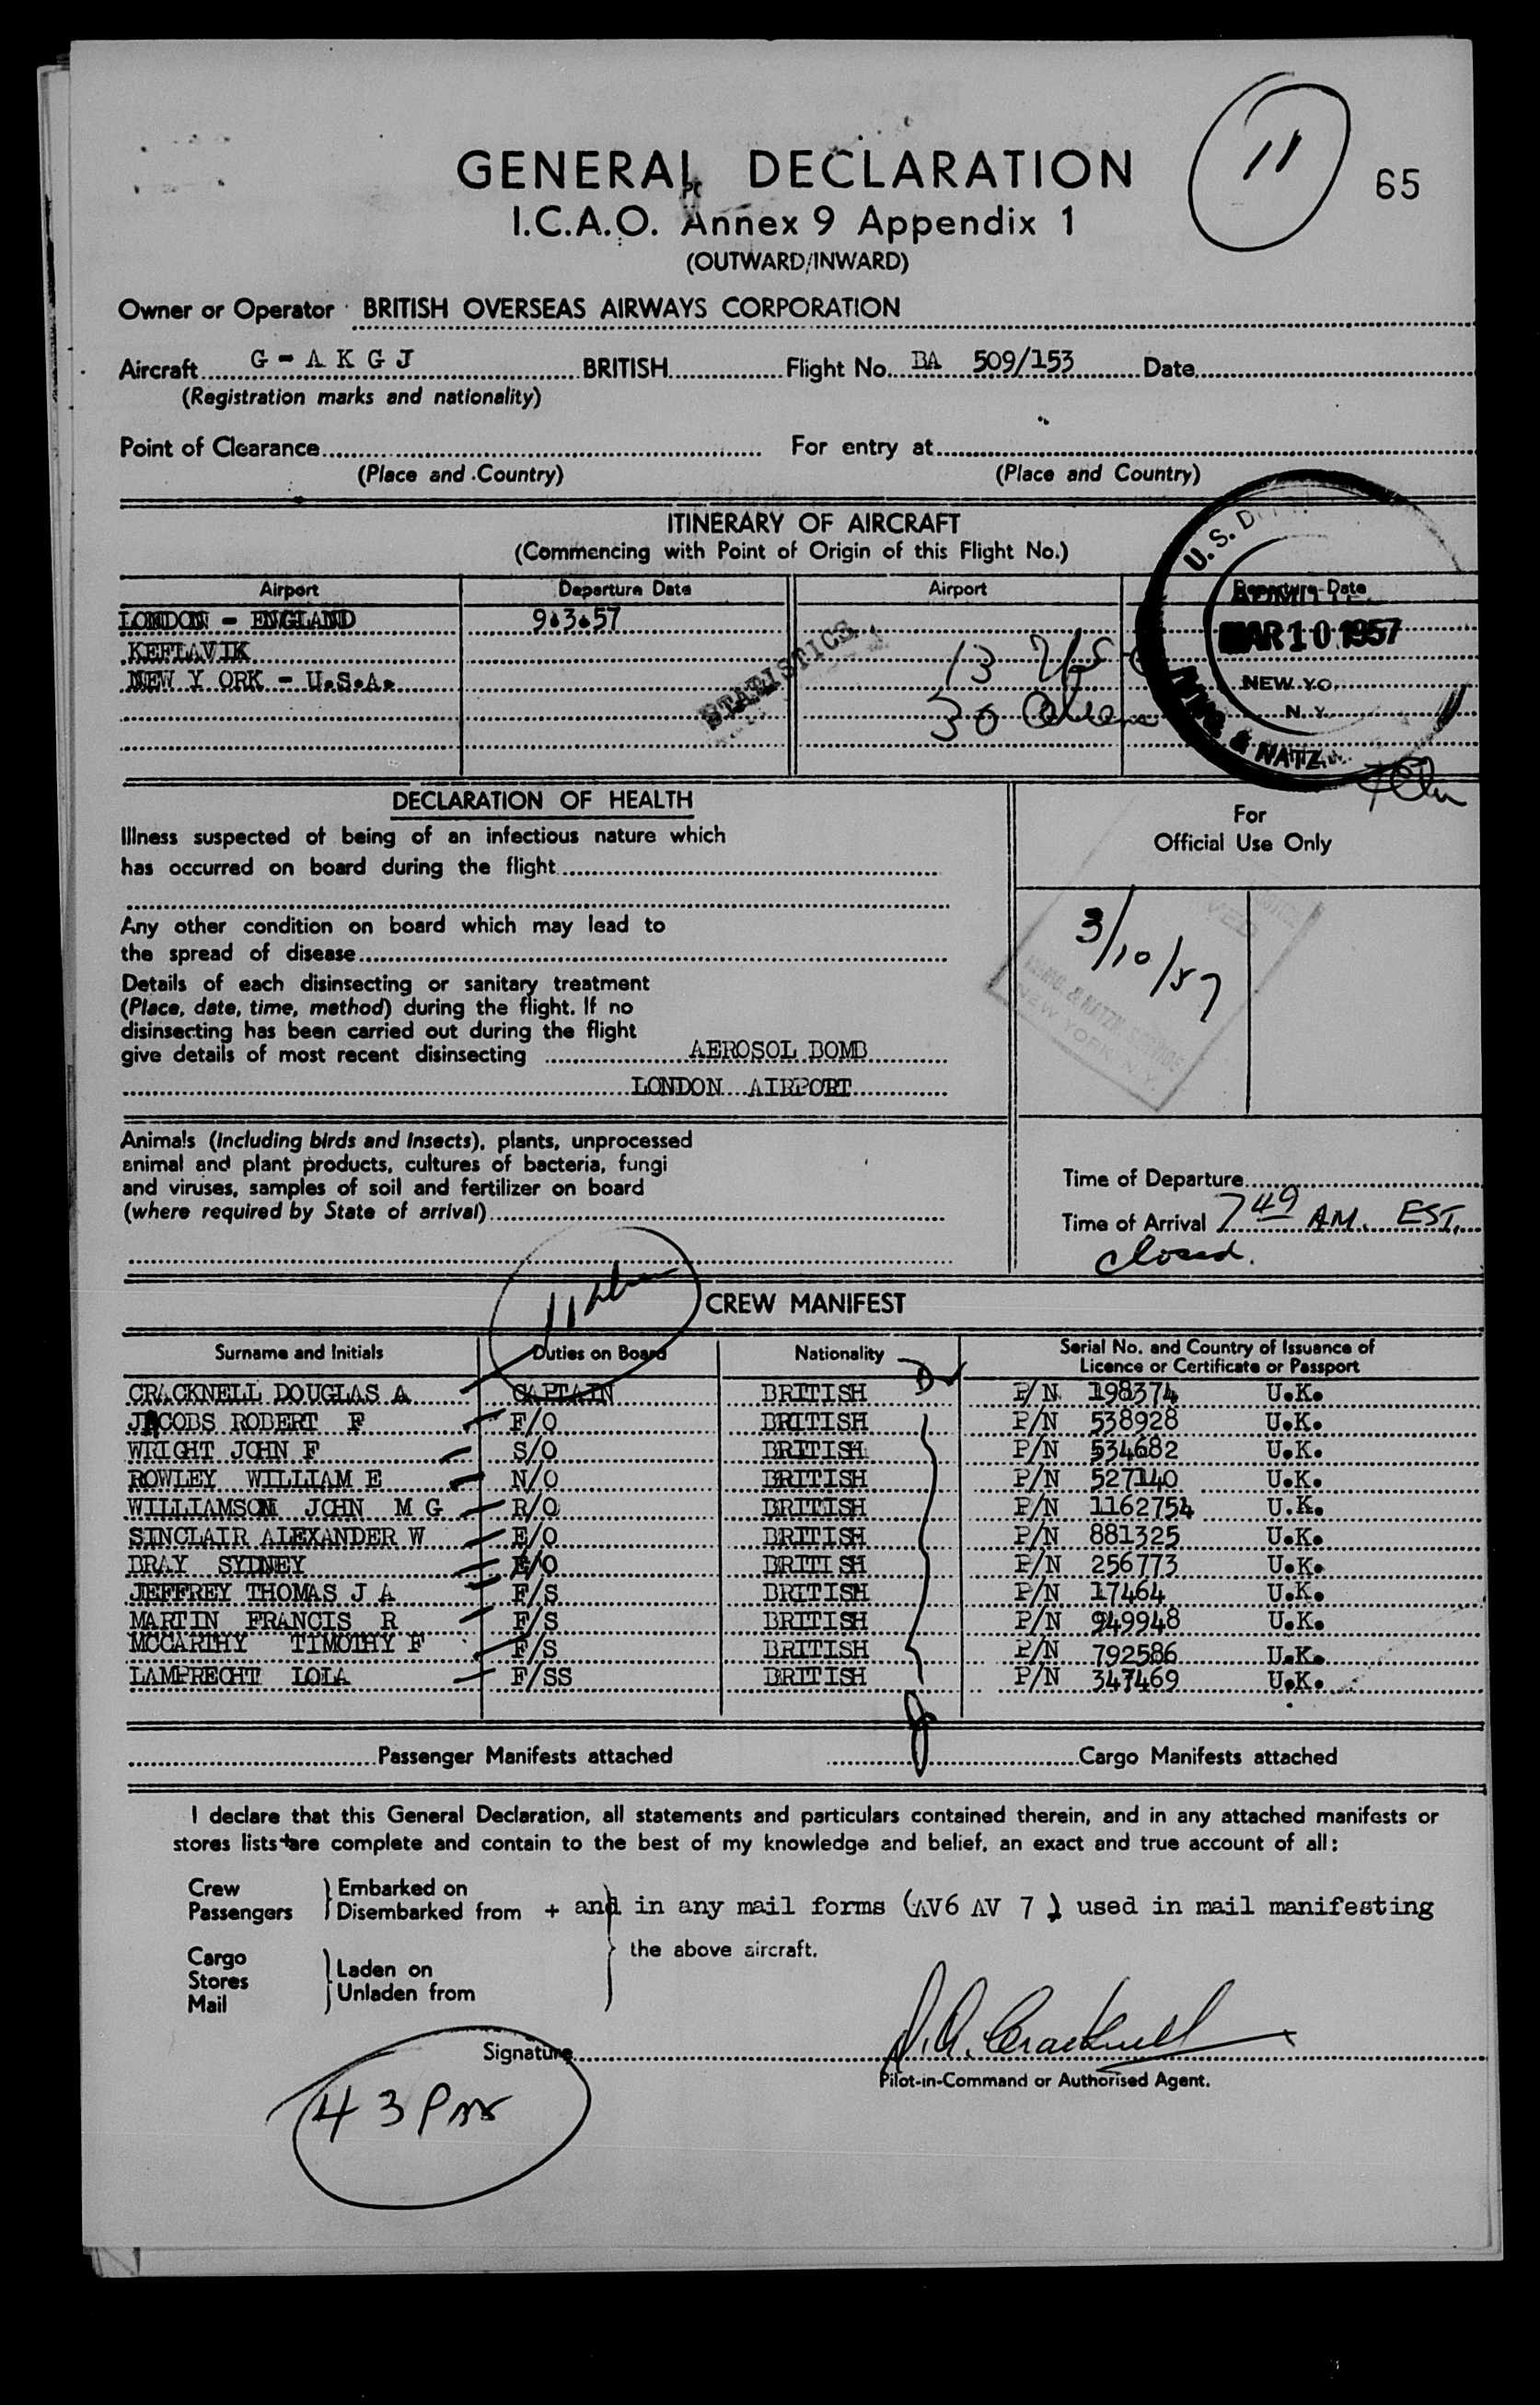 11
65
GENERAL DECLARATION
I.C.A.O. Annex 9 Appendix 1
(OUTWARD/INWARD)
Owner or Operator BRITISH OVERSEAS AIRWAYS CORPORATION
Aircraft G - A K G J BRITISH Flight No. BA 509/153 Date
(Registration marks and nationality)
Point of Clearance For entry at
(Place and Country) (Place and Country)
ITINERARY OF AIRCRAFT
(Commencing with Point of Origin of this Flight No.)
Airport Departure Date Airport Departure Date
LONDON - ENGLAND 9.3.57
KEFLAVIK
NEW Y ORK - U.S.A.
STATISTICS
13
30
U.S. D
MAR 10 1957
NEW YO
N.Y.
& NATZ
DECLARATION OF HEALTH
Illness suspected of being of an infectious nature which
has occurred on board during the flight
Any other condition on board which may lead to
the spread of disease
Details of each disinsecting or sanitary treatment
(Place, date, time, method) during the flight. If no
disinsecting has been carried out during the flight
give details of most recent disinsecting AEROSOL BOMB
LONDON AIRPORT
For
Official Use Only
3/10/57
& NATZ
NEW YORK N.Y.
Animals (including birds and insects), plants, unprocessed
animal and plant products, cultures of bacteria, fungi
and viruses, samples of soil and fertilizer on board
(where required by State of arrival)
Time of Departure
Time of Arrival 7 49 A.M. EST.
closed.
11
CREW MANIFEST
Surname and Initials Duties on Board Nationality Serial No. and Country of Issuance of
Licence or Certificate or Passport
CRACKNELL DOUGLAS A CAPTAIN BRITISH P/N 198374 U.K.
JACOBS ROBERT F F/O BRITISH P/N 538928 U.K.
WRIGHT JOHN F S/O BRITISH P/N 534682 U.K.
ROWLEY WILLIAM E N/O BRITISH P/N 527140 U.K.
WILLIAMSON JOHN M G R/O BRITISH P/N 1162754 U.K.
SINCLAIR ALEXANDER W E/O BRITISH P/N 881325 U.K.
BRAY SYDNEY E/O BRITISH P/N 256773 U.K.
JEFFREY THOMAS J A F/S BRITISH P/N 17464 U.K.
MARTIN FRANCIS R F/S BRITISH P/N 949948 U.K.
MCCARTHY TIMOTHY F F/S BRITISH P/N 792586 U.K.
LAMPRECHT LOLA F/SS BRITISH P/N 347469 U.K.
Passenger Manifests attached Cargo Manifests attached
I declare that this General Declaration, all statements and particulars contained therein, and in any attached manifests or
stores lists + are complete and contain to the best of my knowledge and belief, an exact and true account of all:
Crew Embarked on
Passengers Disembarked from + and in any mail forms (AV6 AV 7) used in mail manifesting
the above aircraft.
Cargo
Stores Laden on
Mail Unladen from
Signature D.A. Cracknell
Pilot-in-Command or Authorised Agent.
43